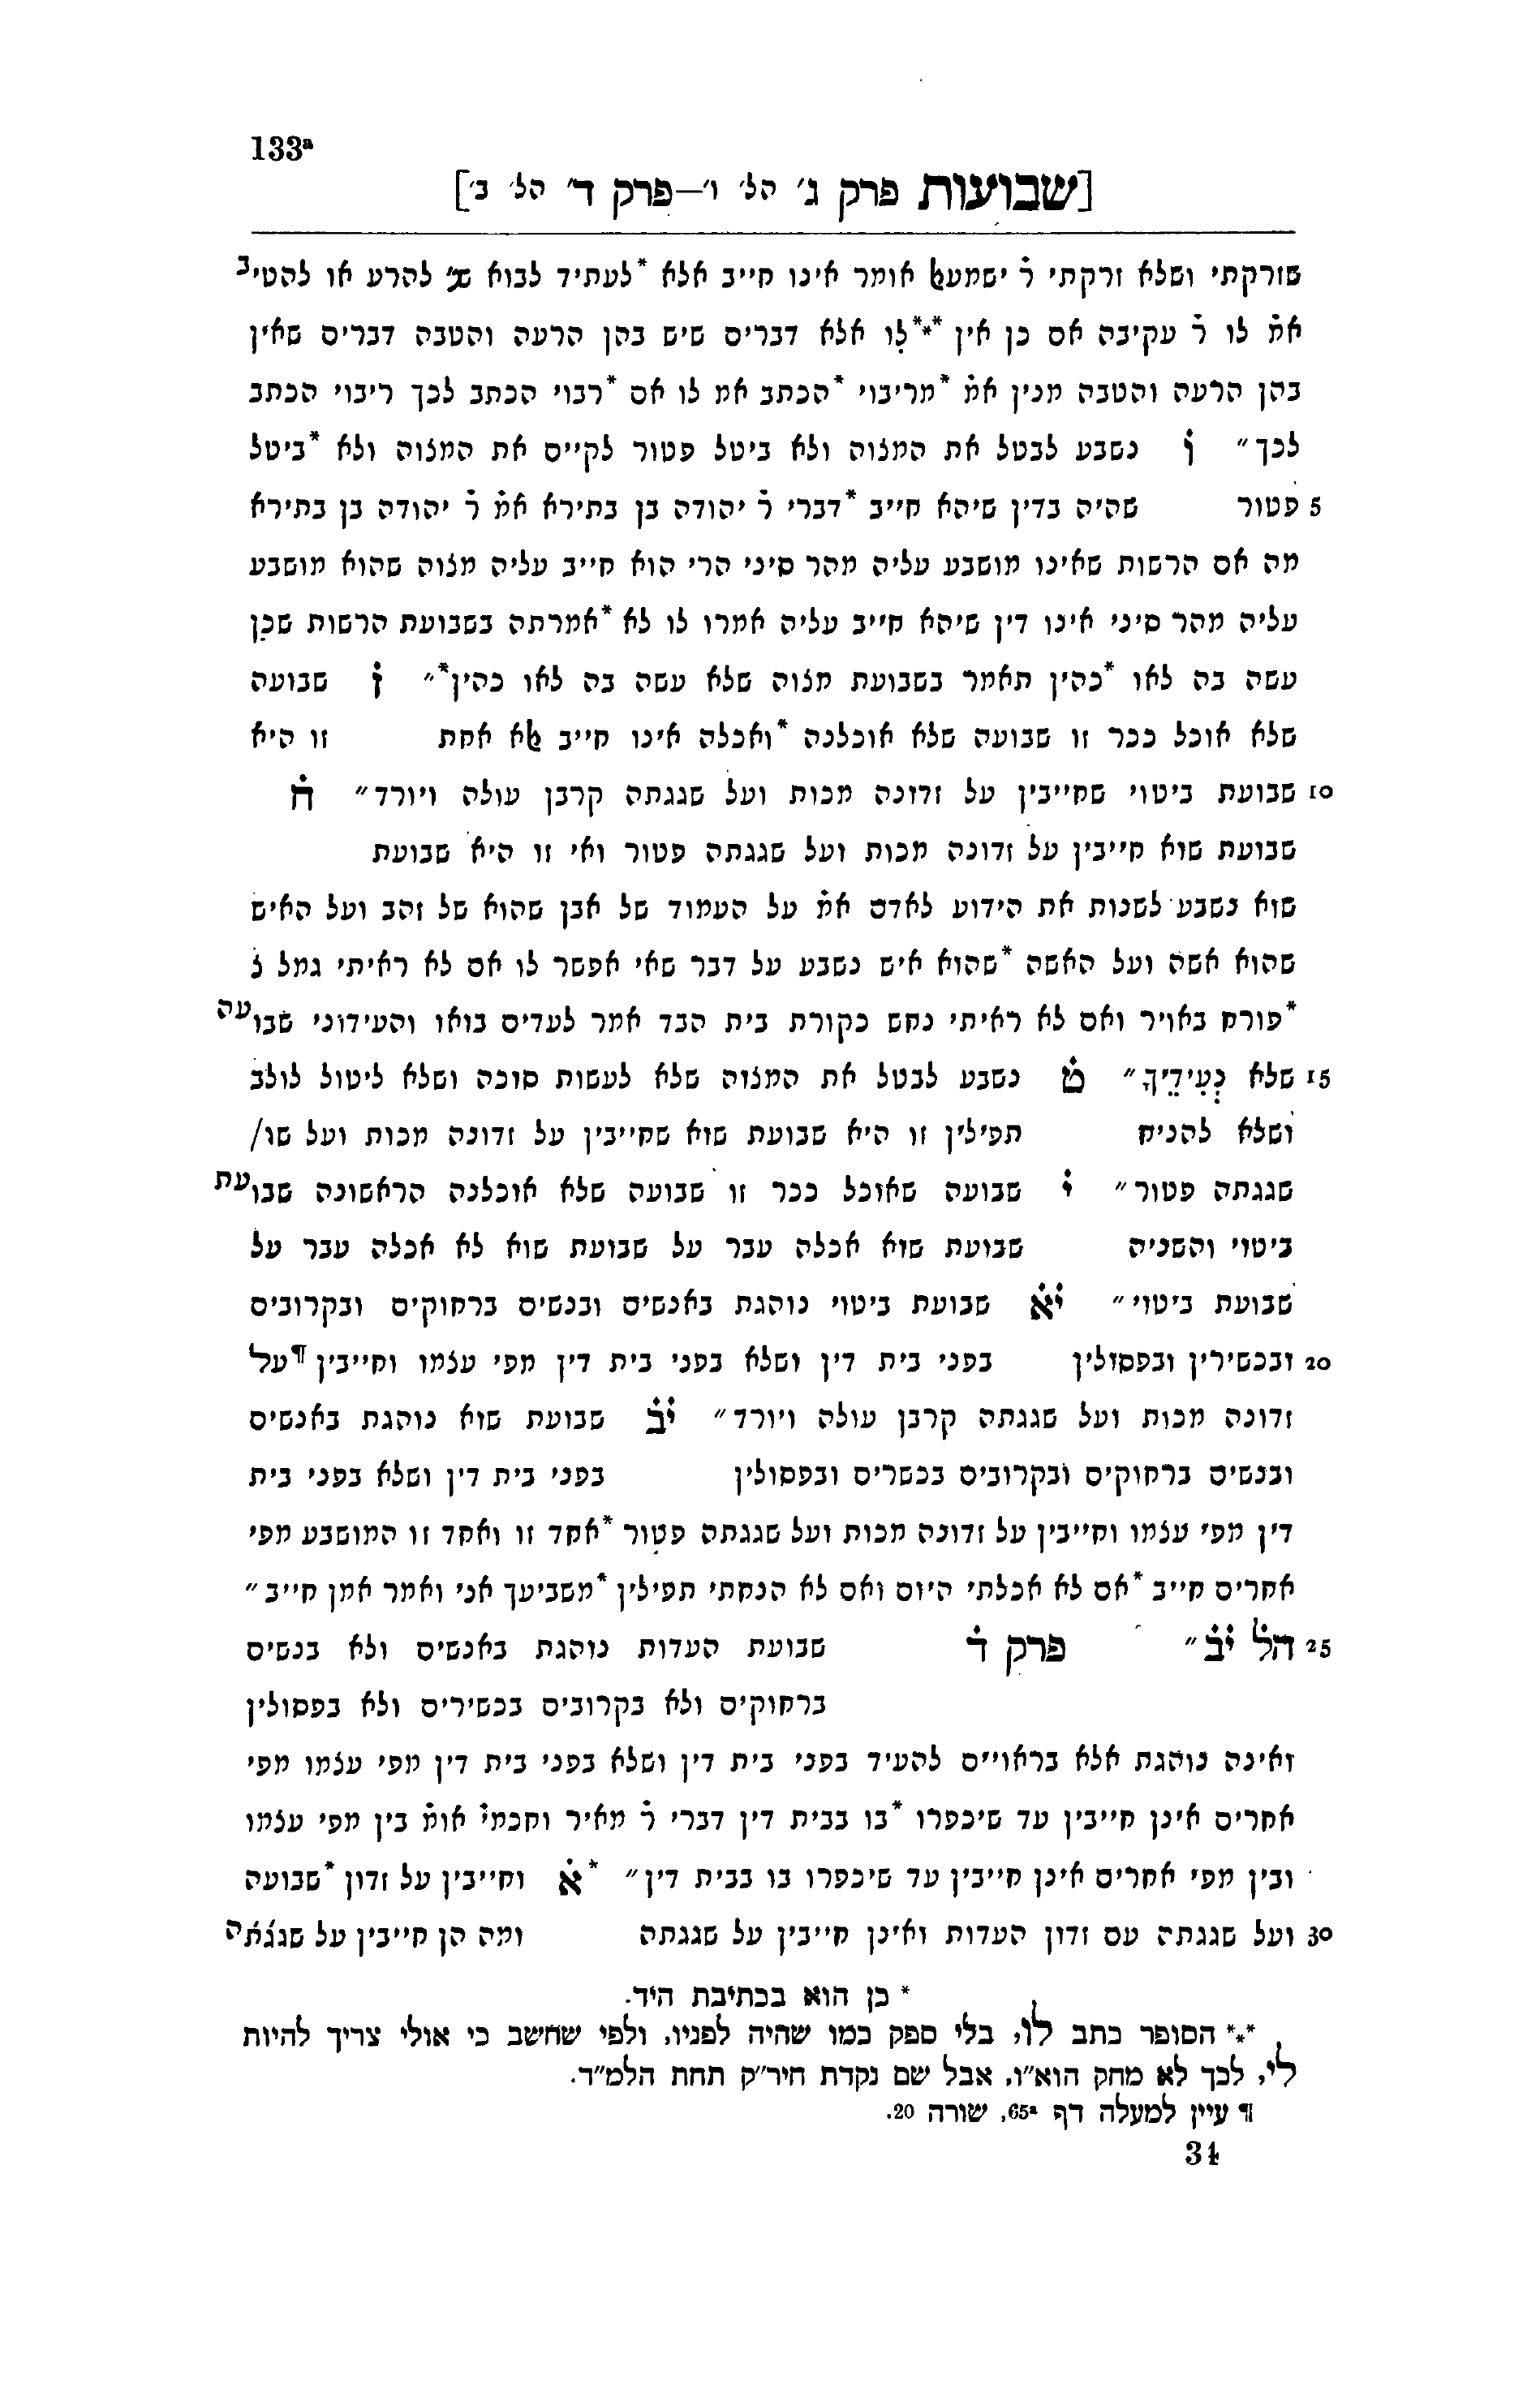 133ª
[שבועות פרק ג׳ הל׳ ו׳—פרק ד׳ הל׳ ב׳]
שזרקתי ושלא זרקתי ר׳ ישמעאל אומר אינו חייב אלא *לעתיד לבוא שנ׳ להרע או להטיב
אמ׳ לו ר׳ עקיבה אם כן אין ***לו אלא דברים שיש בהן הרעה והטבה דברים שאין
בהן הרעה והטבה מנין אמ׳ *מריבוי *הכתב אמ לו אם *רבוי הכתב לכך ריבוי הכתב
לכך״ ו נשבע לבטל את המצוה ולא ביטל פטור לקיים את המצוה ולא *ביטל
5 פטור שהיה בדין שיהא חייב *דברי ר׳ יהודה בן בתירא אמ׳ ר׳ יהודה בן בתירא
מה אם הרשות שאינו מושבע עליה מהר סיני הרי הוא חייב עליה מצוה שהוא מושבע
עליה מהר סיני אינו דין שיהא חייב עליה אמרו לו לא *אמרתה בשבועת הרשות שכן
עשה בה לאו *כהין תאמר בשבועת מצוה שלא עשה בה לאו כהין*״ ז שבועה
שלא אוכל ככר זו שבועה שלא אוכלנה *ואכלה אינו חייב אלא אחת זו היא
10 שבועת ביטוי שחייבין על זדונה מכות ועל שגגתה קרבן עולה ויורד״ ח
שבועת שוא חייבין על זדונה מכות ועל שגגתה פטור ואי זו היא שבועת
שוא נשבע לשנות את הידוע לאדם אמ׳ על העמוד של אבן שהוא של זהב ועל האיש
שהוא אשה ועל האשה *שהוא איש נשבע על דבר שאי אפשר לו אם לא ראיתי גמל צ
*פורח באויר ואם לא ראיתי נחש כקורת בית הבד אמר לעדים בואו והעידוני שבועה
15 שלא נְעִידֵיךָ״ ט נשבע לבטל את המצוה שלא לעשות סוכה ושלא ליטול לולב
ושלא להניח תפילין זו היא שבועת שוא שחייבין על זדונה מכות ועל שו/
שגגתה פטור״ י שבועה שאוכל ככר זו שבועה שלא אוכלנה הראשונה שבועת
ביטוי והשניה שבועת שוא אכלה עבר על שבועת שוא לא אכלה עבר על
שבועת ביטוי״ יא שבועת ביטוי נוהגת באנשים ובנשים ברחוקים ובקרובים
20 ובכשירין ובפסולין בפני בית דין ושלא בפני בית דין מפי עצמו וחייבין ¶על
זדונה מכות ועל שגגתה קרבן עולה ויורד״ יב שבועת שוא נוהגת באנשים
ובנשים ברחוקים ובקרובים בכשרים ובפסולין בפני בית דין ושלא בפני בית
דין מפי עצמו וחייבין על זדונה מכות ועל שגגתה פטור *אחד זו ואחד זו המושבע מפי
אחרים חייב *אם לא אכלתי היום ואם לא הנחתי תפילין *משביעך אני ואמר אמן חייב״
25 הל יב״ פרק ד שבועת העדות נוהגת באנשים ולא בנשים
ברחוקים ולא בקרובים בכשירים ולא בפסולין
ואינה נוהגת אלא בראויים להעיד בפני בית דין ושלא בפני בית דין מפי עצמו מפי
אחרים אינן חייבין עד שיכפרו *בו בבית דין דברי ר׳ מאיר וחכמי׳ אומ׳ בין מפי עצמו
ובין מפי אחרים אינן חייבין עד שיכפרו בו בבית דין״ *א וחייבין על זדון *שבועה
30 ועל שגגתה עם זדון העדות ואינן חייבין על שגגתה ומה הן חייבין על שגגתה
* כן הוא בכתיבת היד.
*** הסופר כתב לו, בלי ספק כמו שהיה לפניו, ולפי שחשב כי אולי צריך להיות
לי, לכך לא מחק הוא״ו, אבל שם נקדת חיר״ק תחת הלמ״ד.
¶ עיין למעלה דף 65ª, שורה 20.
34